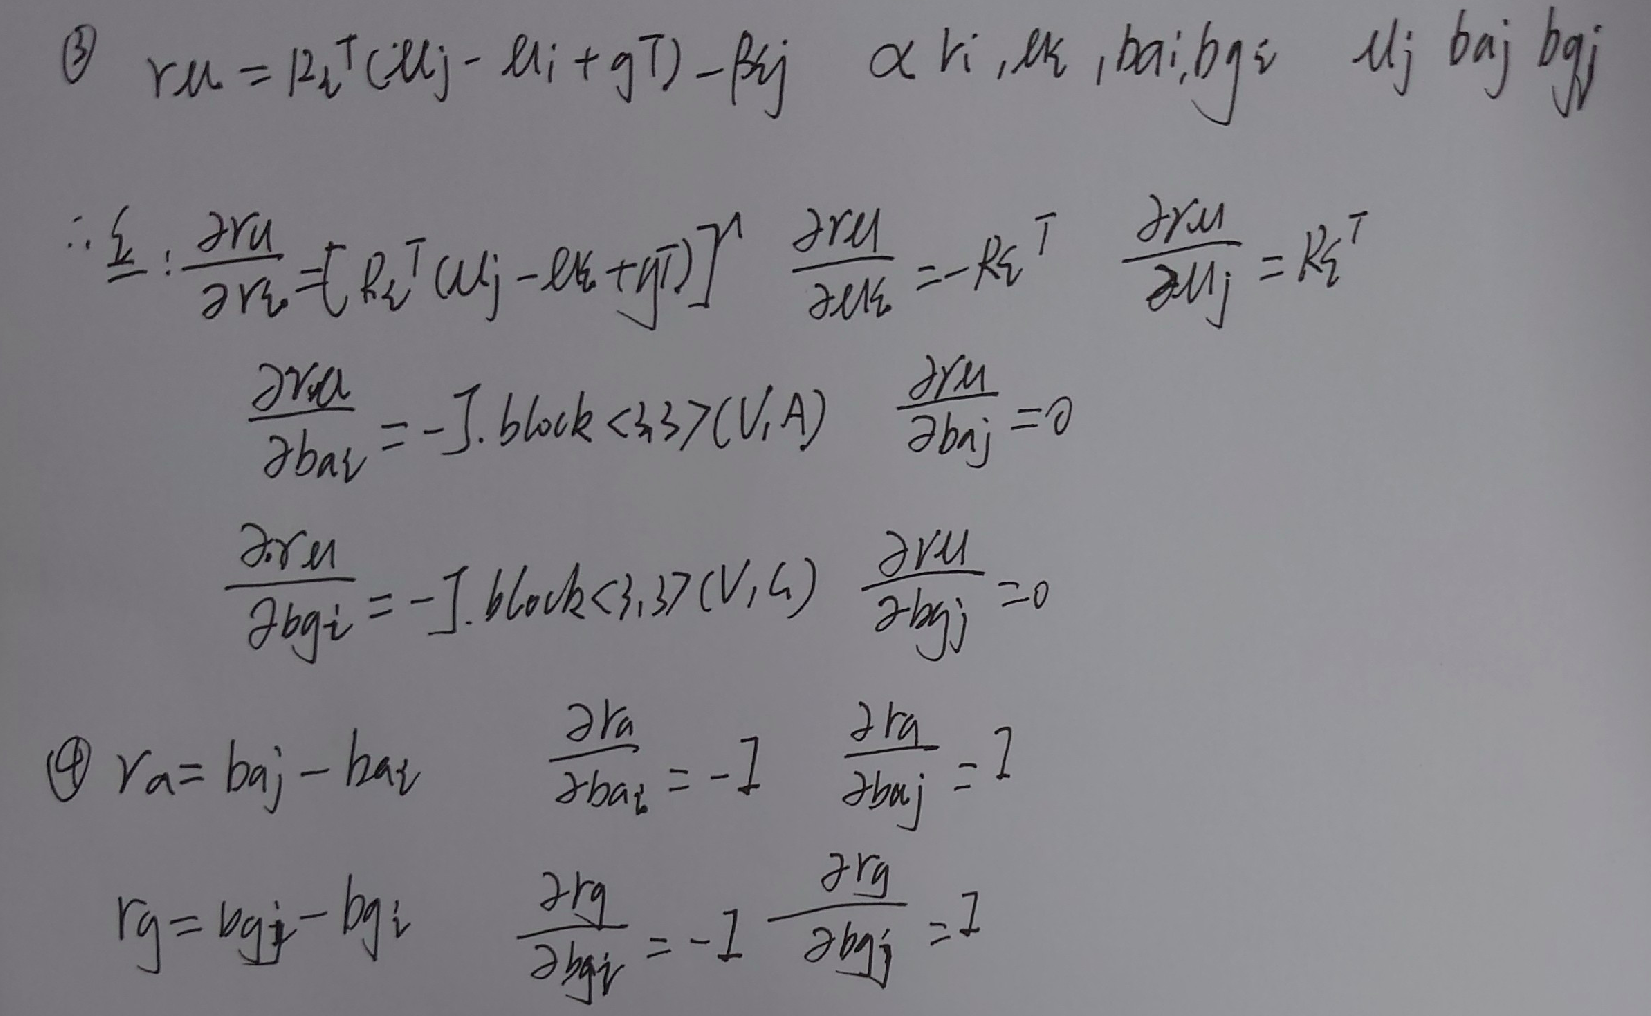 ③ ru = Ri^T (uj - ui + gT) - βij α ri, ui, bai, bgi uj baj bgj
∴ i : ∂ru/∂ri = [Ri^T (uj - ui + gT)]^∧ ∂ru/∂ui = -Ri^T ∂ru/∂uj = Ri^T
∂ru/∂bai = -J.block<3,3>(V,A) ∂ru/∂baj = 0
∂ru/∂bgi = -J.block<3,3>(V,G) ∂ru/∂bgj = 0
④ ra = baj - bai ∂ra/∂bai = -I ∂ra/∂baj = I
rg = bgj - bgi ∂rg/∂bgi = -I ∂rg/∂bgj = I